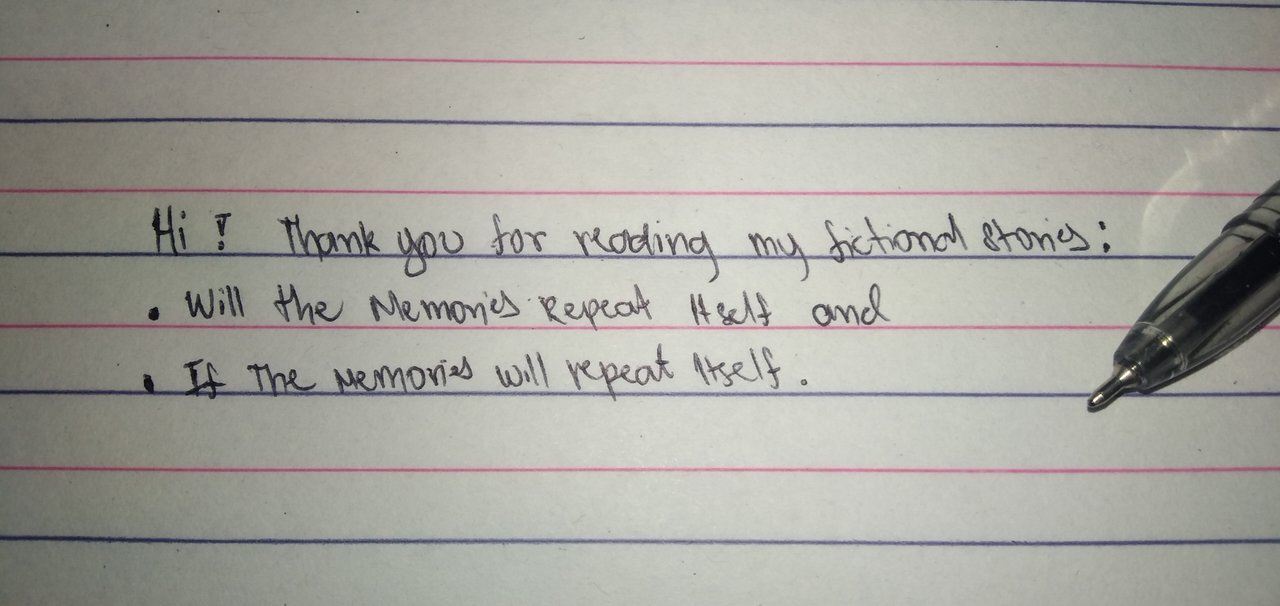 Hi! Thank you for reading my fictional stories:
• Will the Memories Repeat Itself and
• If The Memories will repeat Itself.